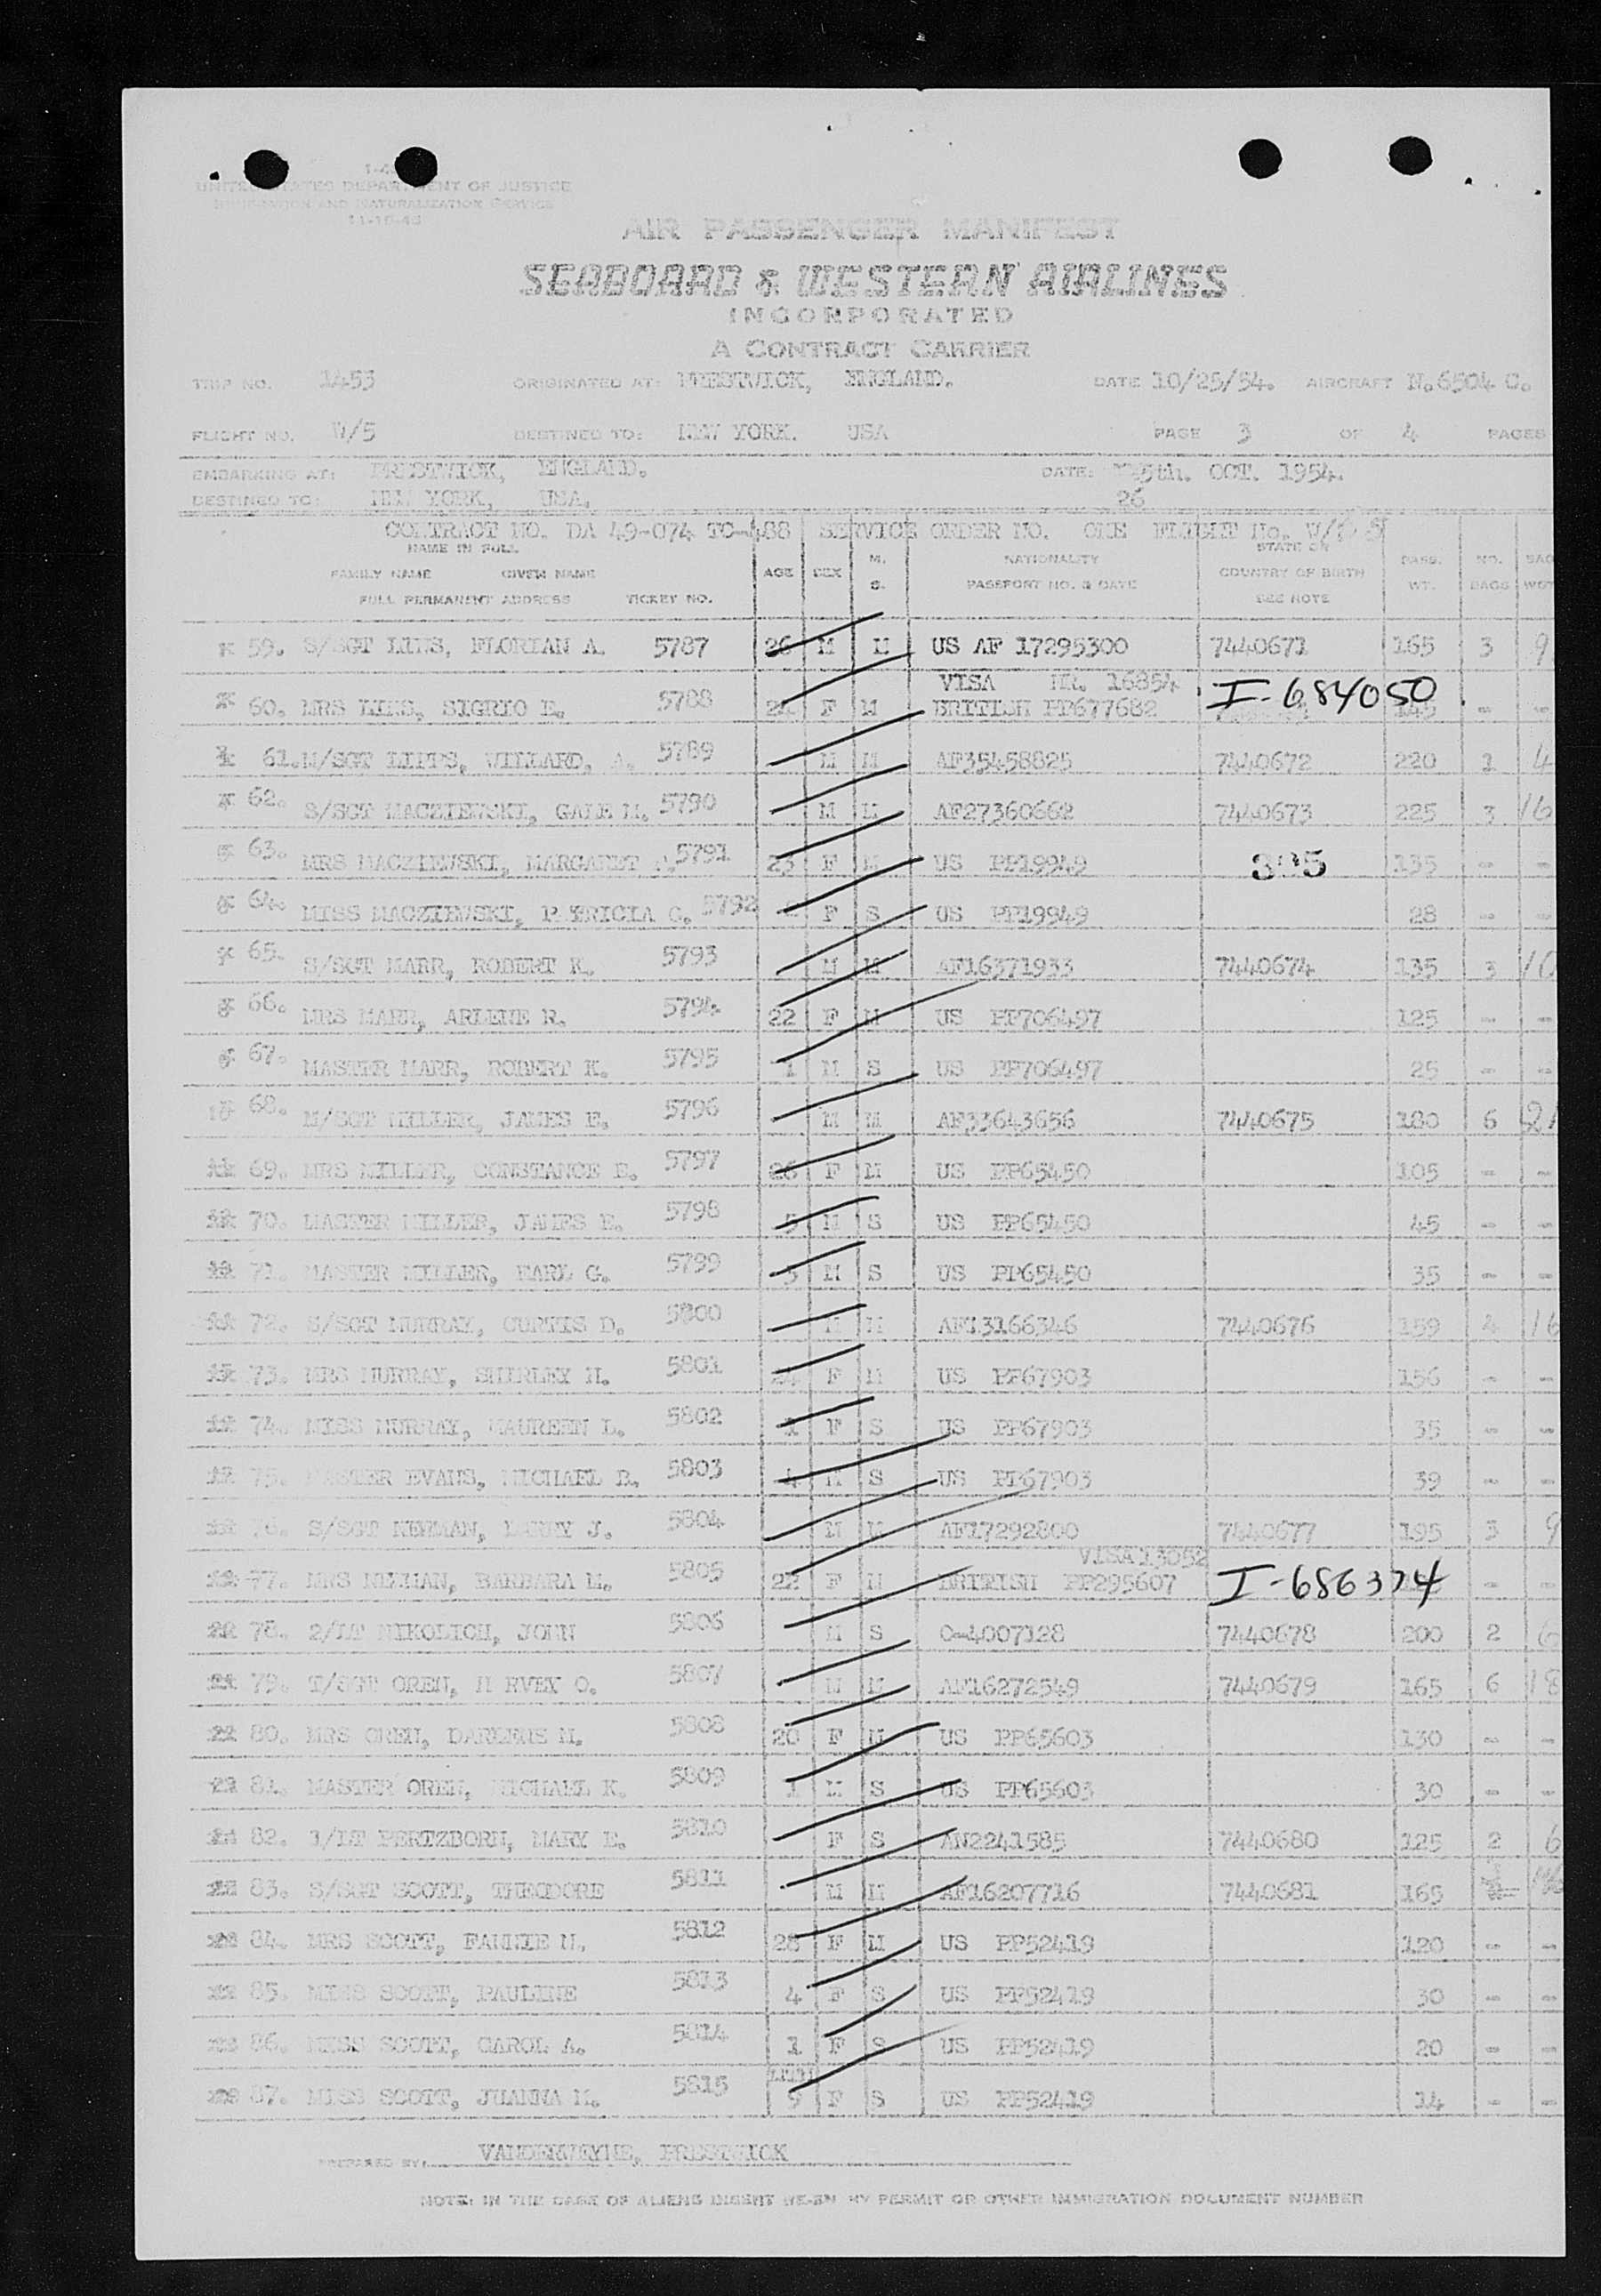 UNITED STATES DEPARTMENT OF JUSTICE
IMMIGRATION AND NATURALIZATION SERVICE
AIR PASSENGER MANIFEST
SEABOARD & WESTERN AIRLINES
INCORPORATED
A CONTRACT CARRIER
TRIP NO. 1453 ORIGINATED AT: PRESTWICK, ENGLAND. DATE 10/25/54. AIRCRAFT No.6504 C.
FLIGHT NO. W/5 DESTINED TO: NEW YORK. USA PAGE 3 OF 4 PAGES
EMBARKING AT: PRESTWICK, ENGLAND. DATE: 25th. OCT. 1954.
DESTINED TO: NEW YORK, USA. 26
CONTRACT NO. DA 49-074 TC-488 SERVICE ORDER NO. ONE FLIGHT No. W/ 5
NAME IN FULL
FAMILY NAME GIVEN NAME
FULL PERMANENT ADDRESS TICKET NO. AGE SEX M. S. NATIONALITY PASSPORT NO. & DATE STATE OR COUNTRY OF BIRTH SEE NOTE PASS. WT. NO. BAGS BAG WGT
59. S/SGT LINS, FLORIAN A. 5787 26 M M US AF 17295300 7440671 165 3 9
VISA NR. 16854
60. MRS LINS, 5788 F M BRITISH PP677682 I-684050 145 - -
61. M/SGT LIPPS, WILLARD, A. 5789 M M AF35458825 7440672 220 1 4
62. S/SGT MACZIEWSKI, GALE M. 5790 M M AF27360662 7440673 225 3 16
63. MRS MACZIEWSKI, MARGARET 5791 23 F M US PP19949 395 135 - -
64. MISS MACZIEWSKI, PATRICIA C. 5792 F S US PP19949 28 - -
65. S/SGT MARR, ROBERT K. 5793 M M AF16371933 7440674 135 3 10
66. MRS MARR, ARLENE R. 5794 22 F M US PP706497 125 - -
67. MASTER MARR, ROBERT K. 5795 1 M S US PP706497 25 - -
68. M/SGT MILLER, JAMES E. 5796 M M AF33643656 7440675 180 6 21
69. MRS MILLER, CONSTANCE E. 5797 26 F M US PP65450 105 - -
70. MASTER MILLER, JAMES E. 5798 5 M S US PP65450 45 - -
71. MASTER MILLER, EARL G. 5799 3 M S US PP65450 35 - -
72. S/SGT MURRAY, CURTIS D. 5800 M M AF13166346 7440676 159 4 16
73. MRS MURRAY, SHIRLEY H. 5801 24 F M US PP67903 156 - -
74. MISS MURRAY, MAUREEN L. 5802 1 F S US PP67903 35 - -
75. MASTER EVANS, MICHAEL B. 5803 4 M S US PP67903 39 - -
76. S/SGT NEWMAN, J. 5804 M M AF17292800 7440677 195 3 9
VISA 13052
77. MRS NEWMAN, BARBARA M. 5805 22 F M BRITISH PP295607 I-686374 - -
78. 2/LT NIKOLICH, JOHN 5806 M S O-4007128 7440678 200 2 6
79. T/SGT OREN, H RVEY O. 5807 M M AF16272549 7440679 165 6 18
80. MRS OREN, DARLENE M. 5808 20 F M US PP65603 130 - -
81. MASTER OREN, MICHAEL K. 5809 1 M S US PP65603 30 - -
82. 1/LT PERTZBORN, MARY E. 5810 F S AN2241585 7440680 125 2 6
83. S/SGT SCOTT, THEODORE 5811 M M AF16207716 7440681 165
84. MRS SCOTT, FANNIE M. 5812 28 F M US PP52419 120 - -
85. MISS SCOTT, PAULINE 5813 4 F S US PP52419 30 - -
86. MISS SCOTT, CAROL A. 5814 1 F S US PP52419 20 - -
87. MISS SCOTT, JUANNA M. 5815 9 F S US PP52419 14 - -
PREPARED BY: VANDERWEYNE, PRESTWICK
NOTE: IN THE CASE OF ALIENS INSERT RE-EN RY PERMIT OR OTHER IMMIGRATION DOCUMENT NUMBER